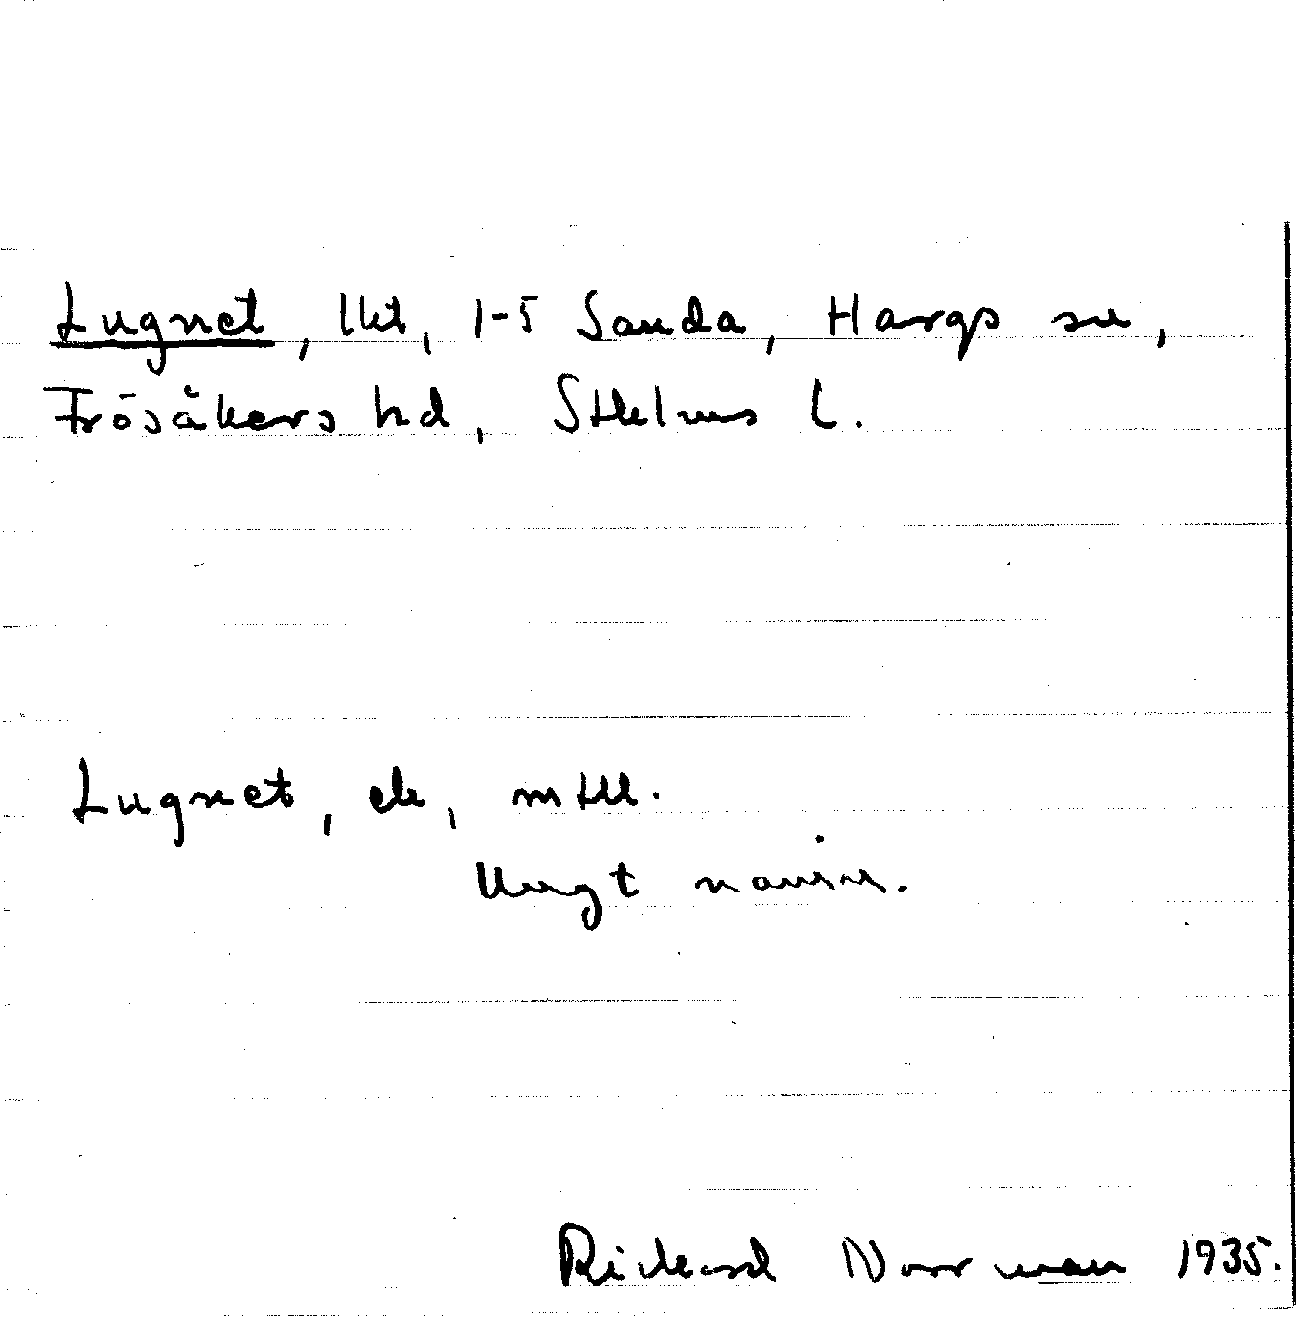 Lugnet, lht, 1-5 Sanda, Hargs sn,
Frösåkers hd, Sthlms l.
Lugnet,
Ungt namn.
Rickard Norrman 1935.